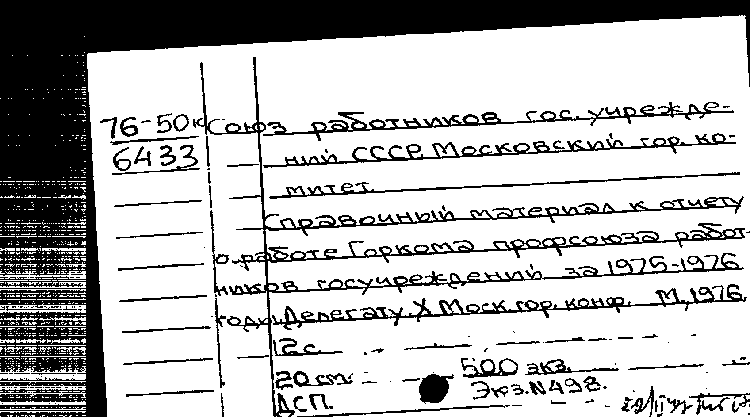 76-50к Союз работников гос. учрежде-
6433 ний СССР. Московский гор. ко-
митет.
Справочный материал к отчету
о работе Горкома профсоюза работ-
ников госучреждений за 1975-1976
годы. Делегату X Моск. гор. конф. М, 1976.
12 с.
20 см. 500 экз.
ДСП. Экз. N 498.